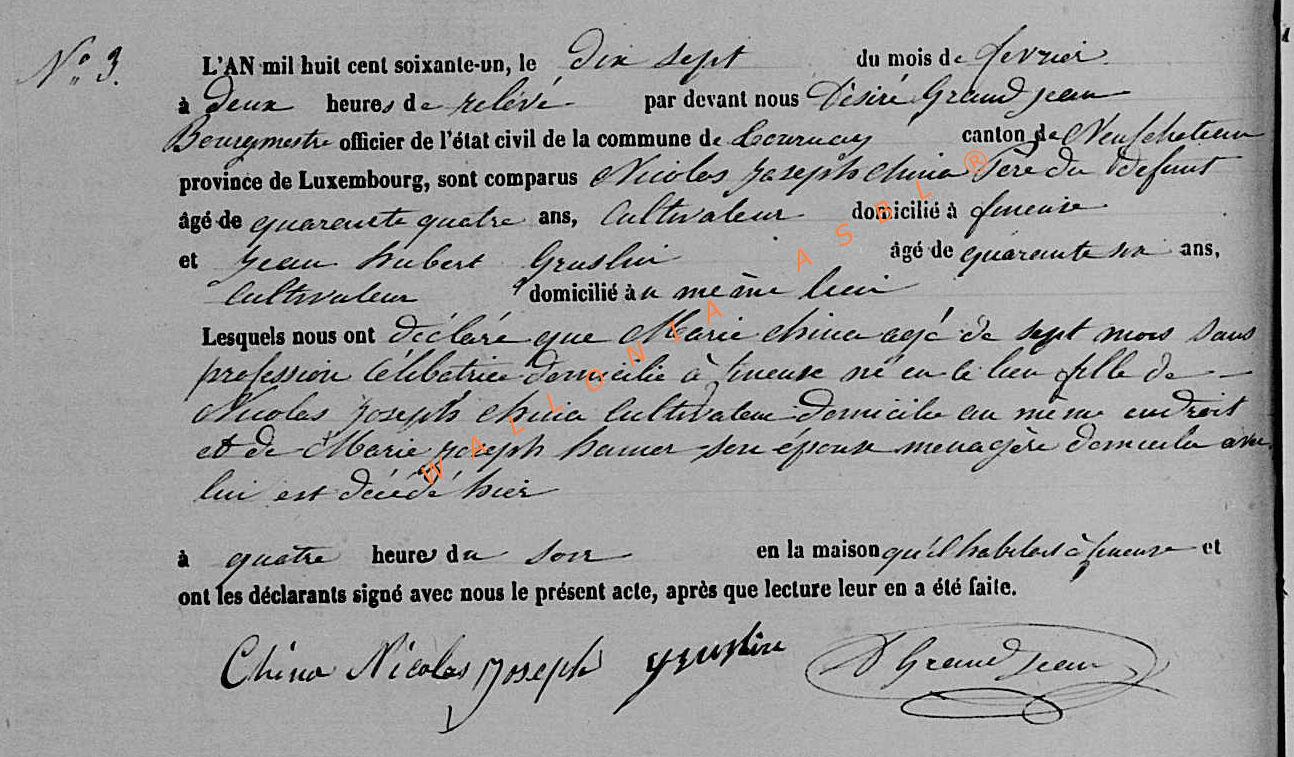 N° 3.
L'AN mil huit cent soixante-un, le dix sept du mois de fevrier
à deux heures de relévé par devant nous Désiré Grandjean
Bourgmestre officier de l'état civil de la commune de Tournay canton de Neufchateau
province de Luxembourg, sont comparus Nicolas Joseph China Père du defunt
âgé de quarante quatre ans, Cultivateur domicilié à fineuse
et Jean hubert Gruslin âgé de quarante six ans,
Cultivateur domicilié au même lieu
Lesquels nous ont déclaré que Marie China agé de sept mois sans
profession célibatrice domicilié à fineuse né en le lieu fille de
Nicolas Joseph China Cultivateur domicilie au même endroit
et de Marie Joseph son épouse menagère domicilie avec
lui est décédé hier
à quatre heures du soir en la maison qu'il habitait à fineuse et
ont les déclarants signé avec nous le présent acte, après que lecture leur en a été faite.
China Nicolas Joseph gruslin D Grandjean
WALLONIA ASBL ®